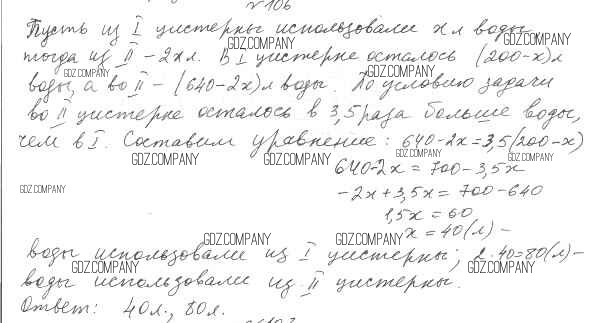 №106
Пусть из I цистерны использовали x л воды,
GDZ.COMPANY GDZ.COMPANY
тогда из II – 2x л. В I цистерне осталось (200-x) л
GDZ.COMPANY GDZ.COMPANY
воды, а во II – (640-2x) л воды. По условию задачи
во II цистерне осталось в 3,5 раза больше воды,
чем в I. Составим уравнение: 640-2x=3,5(200-x)
GDZ.COMPANY GDZ.COMPANY GDZ.COMPANY GDZ.COMPANY
640-2x = 700-3,5x
GDZ.COMPANY
-2x+3,5x = 700-640
1,5x = 60
x = 40 (л) –
GDZ.COMPANY GDZ.COMPANY
воды использовали из I цистерны; 2·40=80 (л) –
GDZ.COMPANY GDZ.COMPANY
воды использовали из II цистерны.
Ответ: 40 л., 80 л.